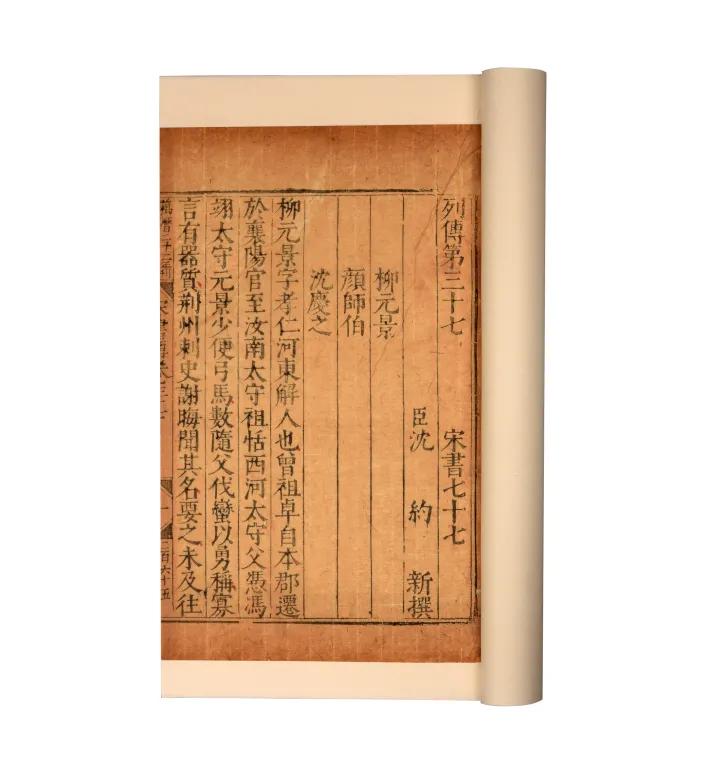 列傳第三十七 宋書七十七
臣沈 約 新撰
柳元景
顏師伯
沈慶之
柳元景字孝仁河東解人也曾祖卓自本郡遷
於襄陽官至汝南太守祖恬西河太守父憑馮
翊太守元景少便弓馬數隨父伐蠻以勇稱寡
言有器質荊州刺史謝晦聞其名要之未及往
萬曆二十二年刊
三百六十五